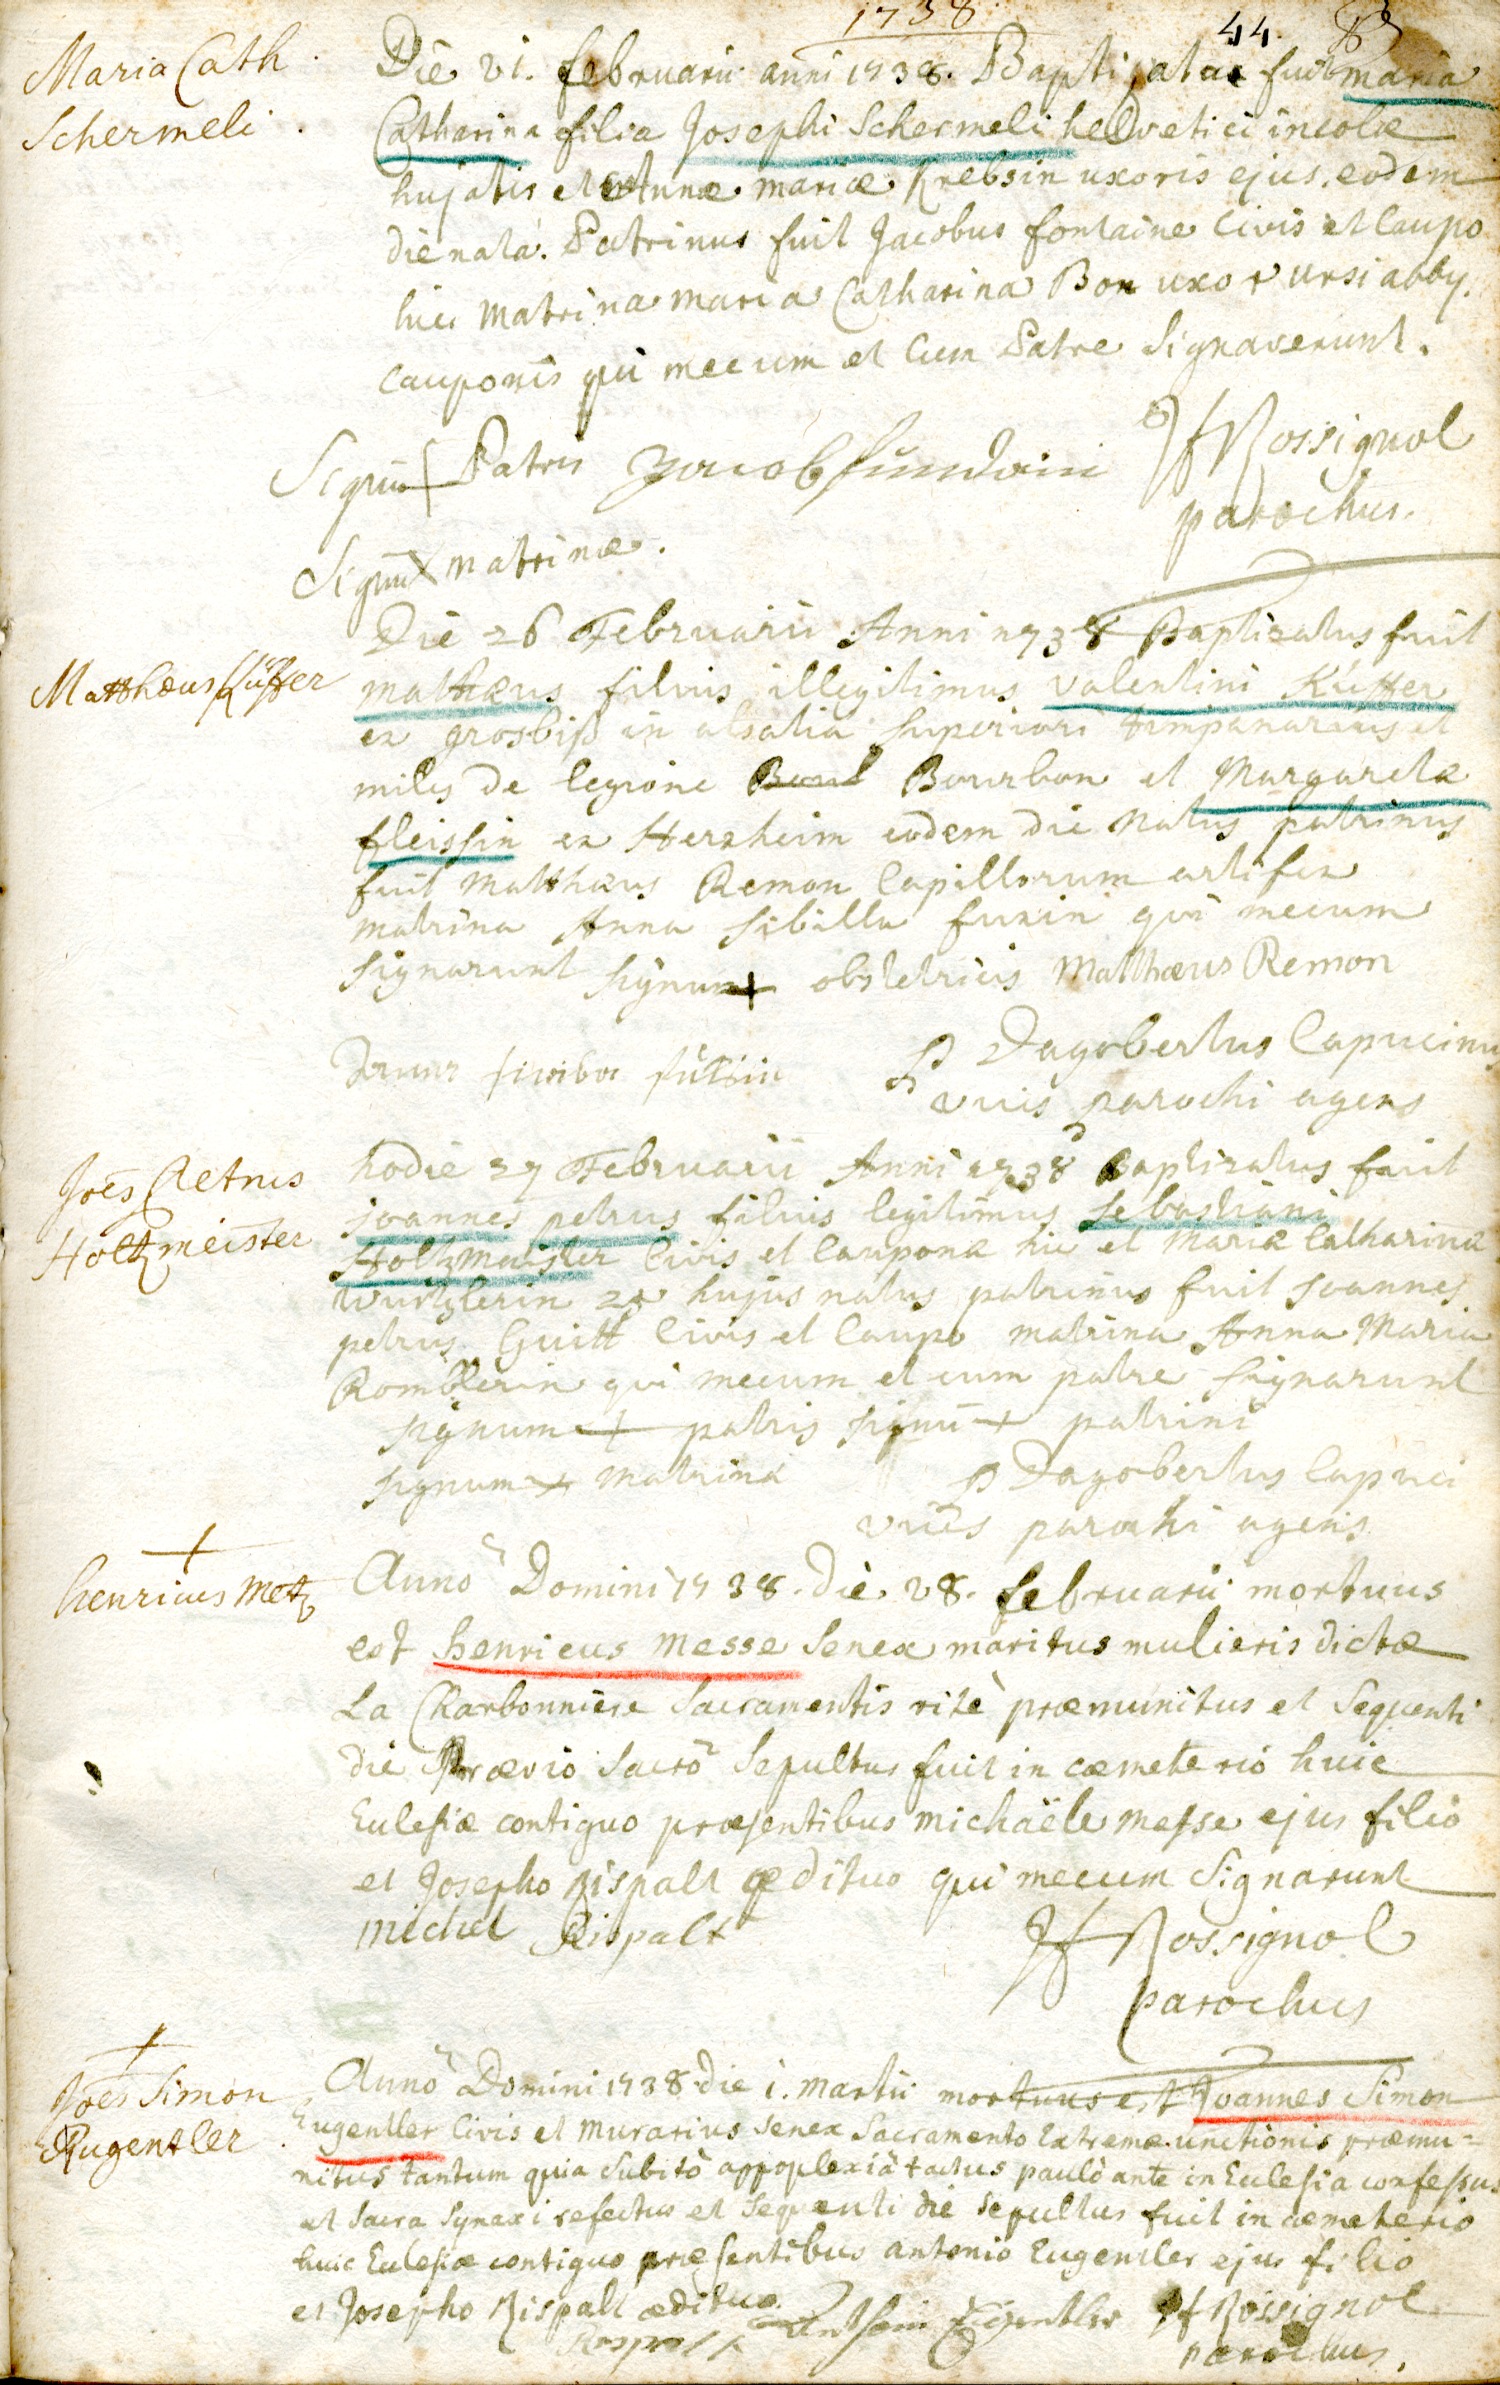 1738.
44.
Maria Cath.
Schermeli.
Die 21. februarii anni 1738. Baptisata fuit maria
Catharina filia Josephi Schermeli helvetici incolæ
hujatis et Annæ mariæ Krebsin uxoris ejus. eodem
die nata. Patrinus fuit Jacobus fontaine Civis et Caupo
hic. Matrina maria Catharina Bon uxor ursi abby.
Cauponis qui mecum et Cum Patre Signaverunt.
Signū + Patris Jacob fundain Jf Rossignol
parochus.
Signū X matrinæ.
Matthæus Küffer
Die 26 Februarii Anni 1738 Baptizatus fuit
mathæus filius illegitimus valentini Küffer
ex grosbiß in alsatia superiori timpanarius et
miles de legione Bourbon et Margaretæ
fleissin ex Herxheim eodem die natus patrinus
fuit Matthæus Remon Capillorum artifex
matrina Anna sibilla fuxin qui mecum
signarunt signum + obstetricis Matthæus Remon
P Dagobertus Capucinus
vices parochi agens
Joēs Petrus
Holtzmeister
hodie 27 Februarii Anni 1738 Baptizatus fuit
joannes petrus filius legitimus Sebastiani
Holtzmeister Civis et Cauponæ hic et Mariæ Catharinæ
Wurtzlerin 25 hujus natus patrinus fuit Joannes
petrus Guitt Civis et Caupo matrina Anna Maria
Romblerin qui mecum et cum patre signarunt
signum + patris signū + patrini
signum + Matrina P Dagobertus Capuci
vices parochi agens
+
henricus Metz
Annô Domini 1738. die 28. februarii mortuus
est henricus Messe Senex maritus mulieris dictæ
La Charbonniere Sacramentis ritè præmunitus et Sequenti
die Prævio Sacrô Sepultus fuit in cæmeterio huic
Eulesiæ contiguo præsentibus michaële messe ejus filio
et Josepho Rispalt ædituo qui mecum Signarunt
Michel Rispalt Jf Rossignol
parochus
+
Joēs Simon
Eugentler
Annô Domini 1738 die 1. Martii mortuus est Joannes Simon
Eugentler Civis et Murarius Senex Sacramento Extremæ unctionis præmu=
nitus tantum quia Subitò appoplexiâ tactus paulò ante in Eulesia confessus
et Sacra Synaxi refectus et Sequenti die Sepultus fuit in cæmeterio
huic Eulesiæ contiguo præsentibus antonio Eugentler ejus filio
et Josepho Rispalt ædituo. Jf Rossignol
parochus.